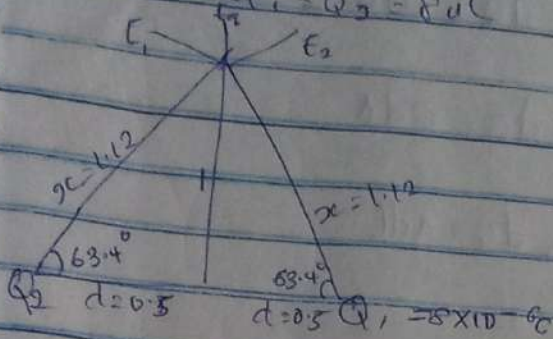 Q₂ = 8μC
E₁ E₂
x=1.12
1
x=1.12
63.4°
63.4°
Q₂ d=0.5 d=0.5 Q₁ =8×10⁻⁶C